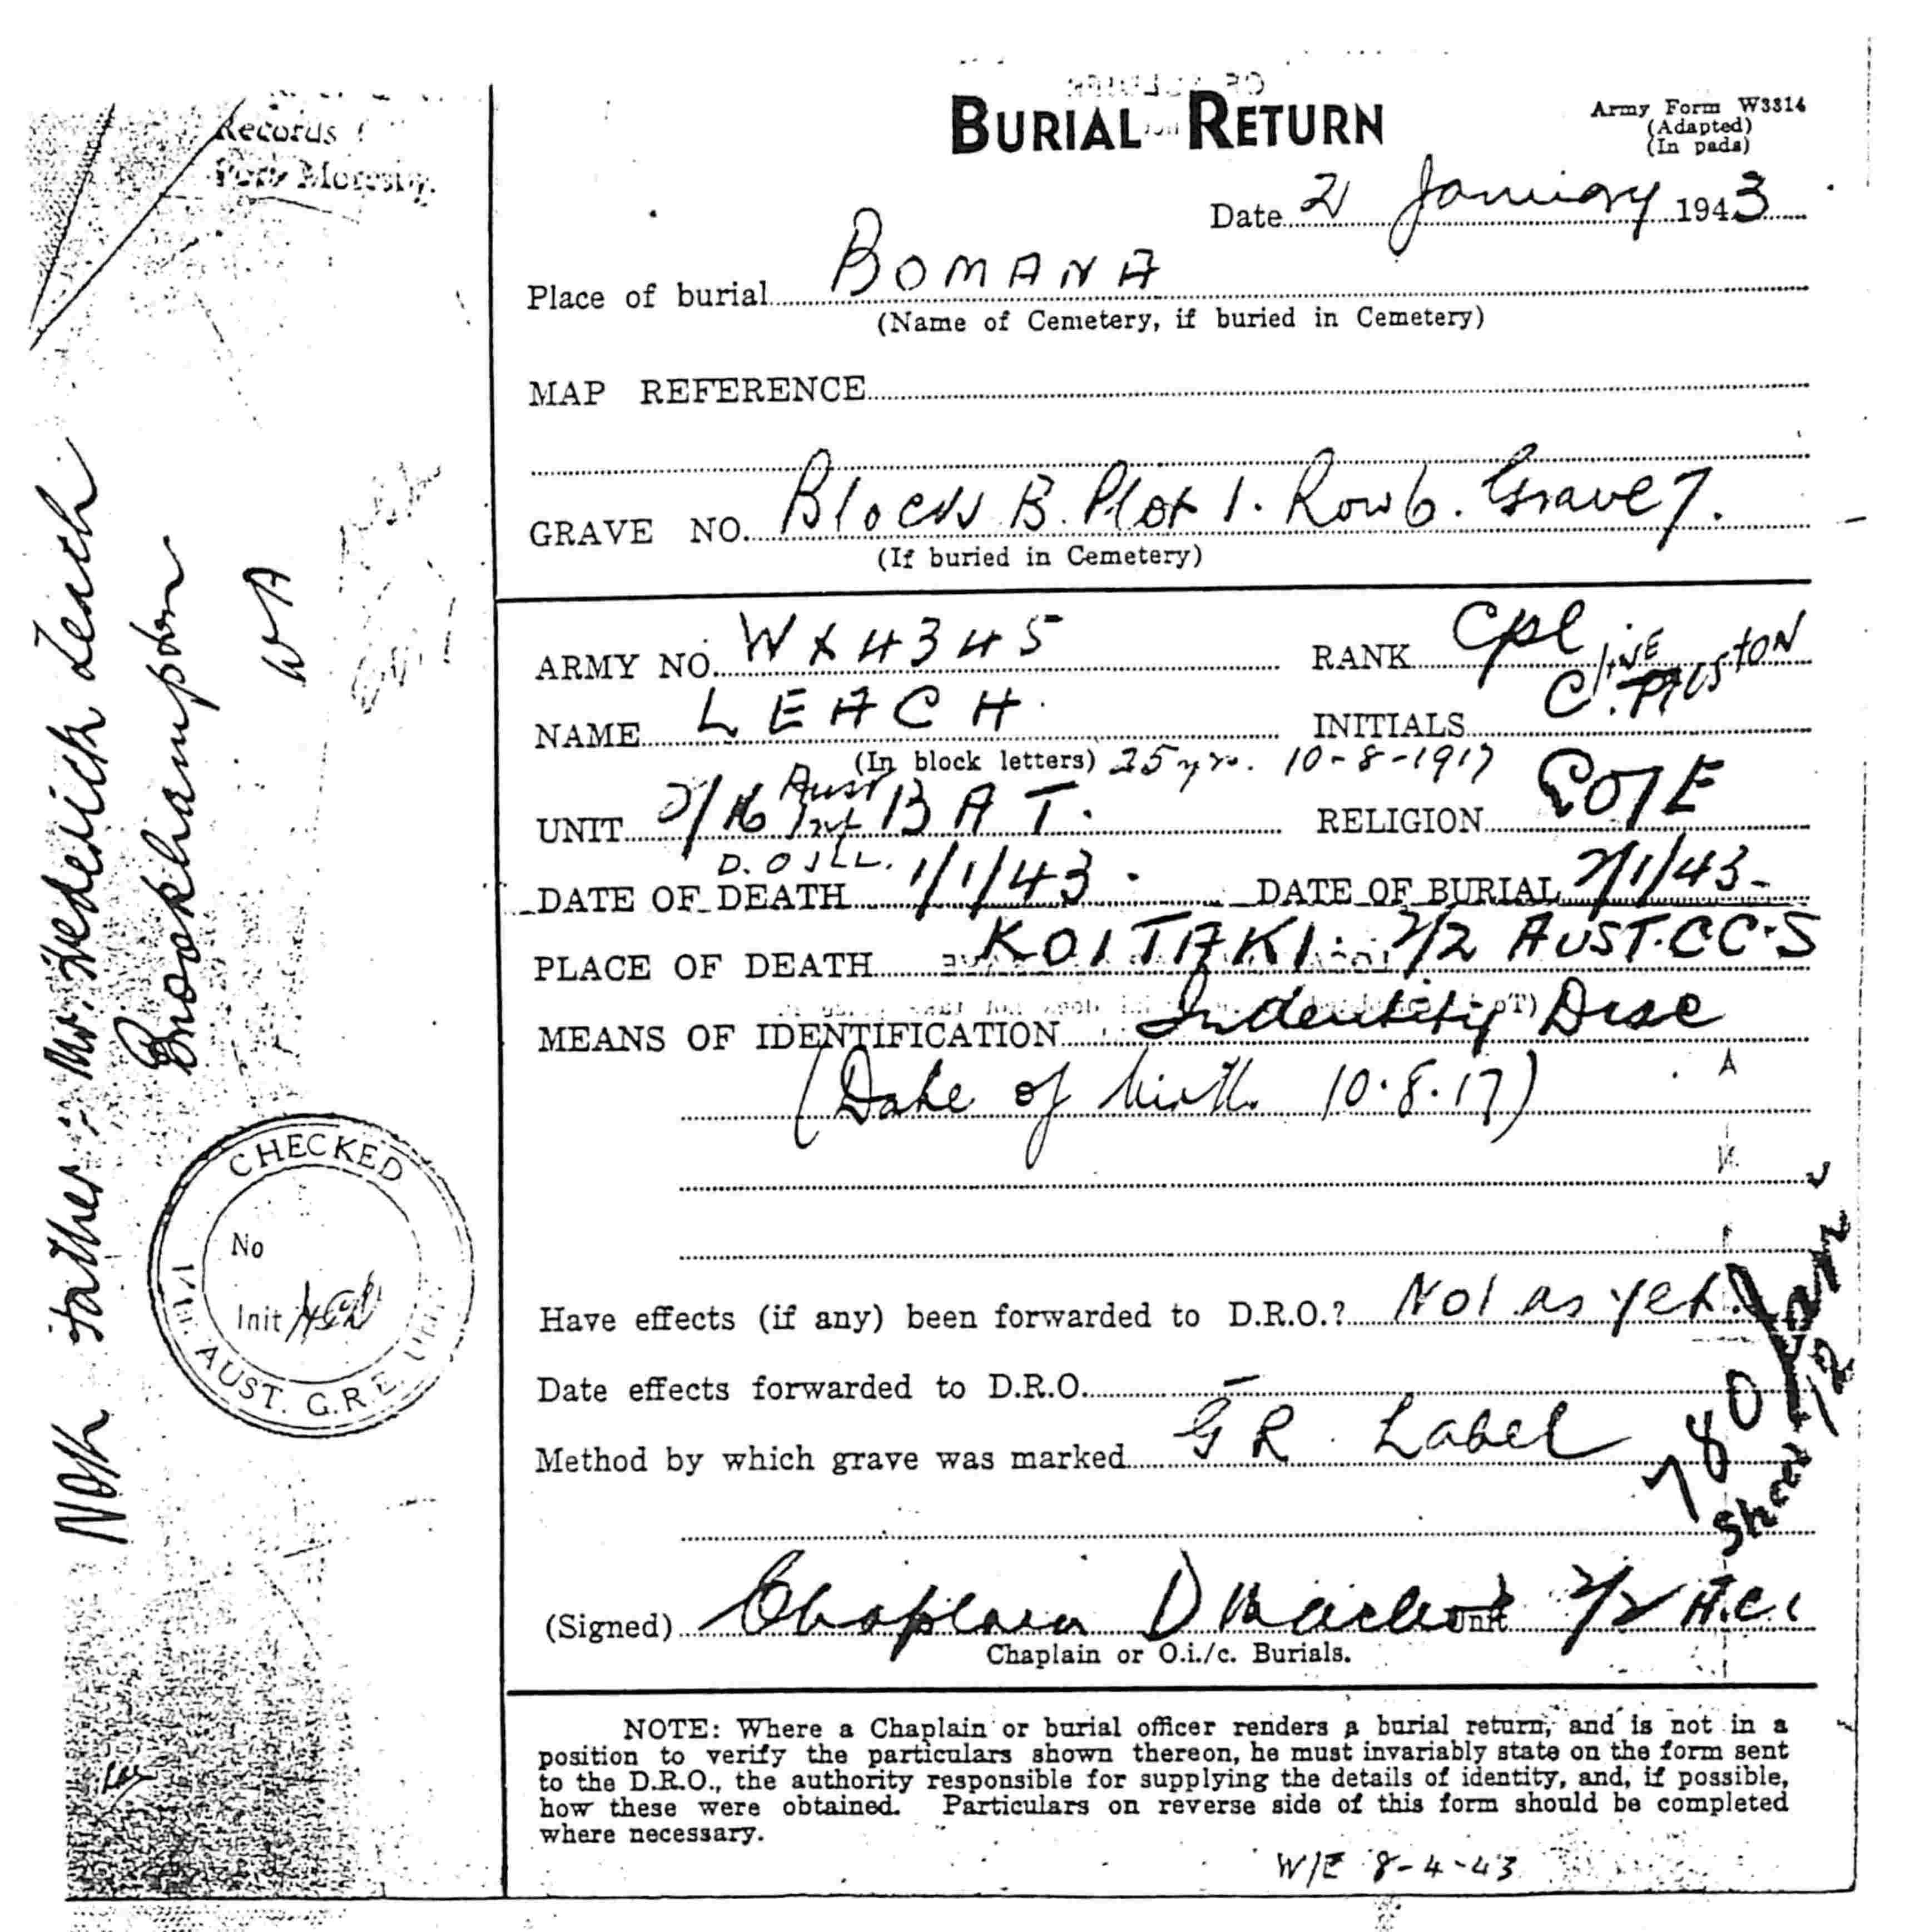 Records
Port Moresby.
BURIAL RETURN
Army Form W3314
(Adapted)
(In pads)
Date 2 January 1943
Place of burial BOMANA
(Name of Cemetery, if buried in Cemetery)
MAP REFERENCE
GRAVE NO. Block B. Plot 1. Row 6. Grave 7.
(If buried in Cemetery)
ARMY NO. WX4345 RANK Cpl
NAME LEACH. INITIALS C. A Clive AUSTON
(In block letters) 25 yrs. 10-8-1917
UNIT 2/16 Aust Inf BAT. RELIGION C of E
D. O ILL.
DATE OF DEATH 1/1/43. DATE OF BURIAL 2/1/43-
PLACE OF DEATH KOITAKI. 2/2 AUST. CC.S
MEANS OF IDENTIFICATION Indentity Disc
(Date of birth 10.8.17)
Have effects (if any) been forwarded to D.R.O.? Not as yet.
Date effects forwarded to D.R.O. –
Method by which grave was marked GR. Label
(Signed) Chaplain D Unit 2/2
Chaplain or O.i./c. Burials.
NOTE: Where a Chaplain or burial officer renders a burial return, and is not in a
position to verify the particulars shown thereon, he must invariably state on the form sent
to the D.R.O., the authority responsible for supplying the details of identity, and, if possible,
how these were obtained. Particulars on reverse side of this form should be completed
where necessary.
W/E 8-4-43
NOK Father:- Mr. Frederick Leach
Brookhampton
WA
CHECKED
No
Init
AUST. G.R.E. UNIT
780